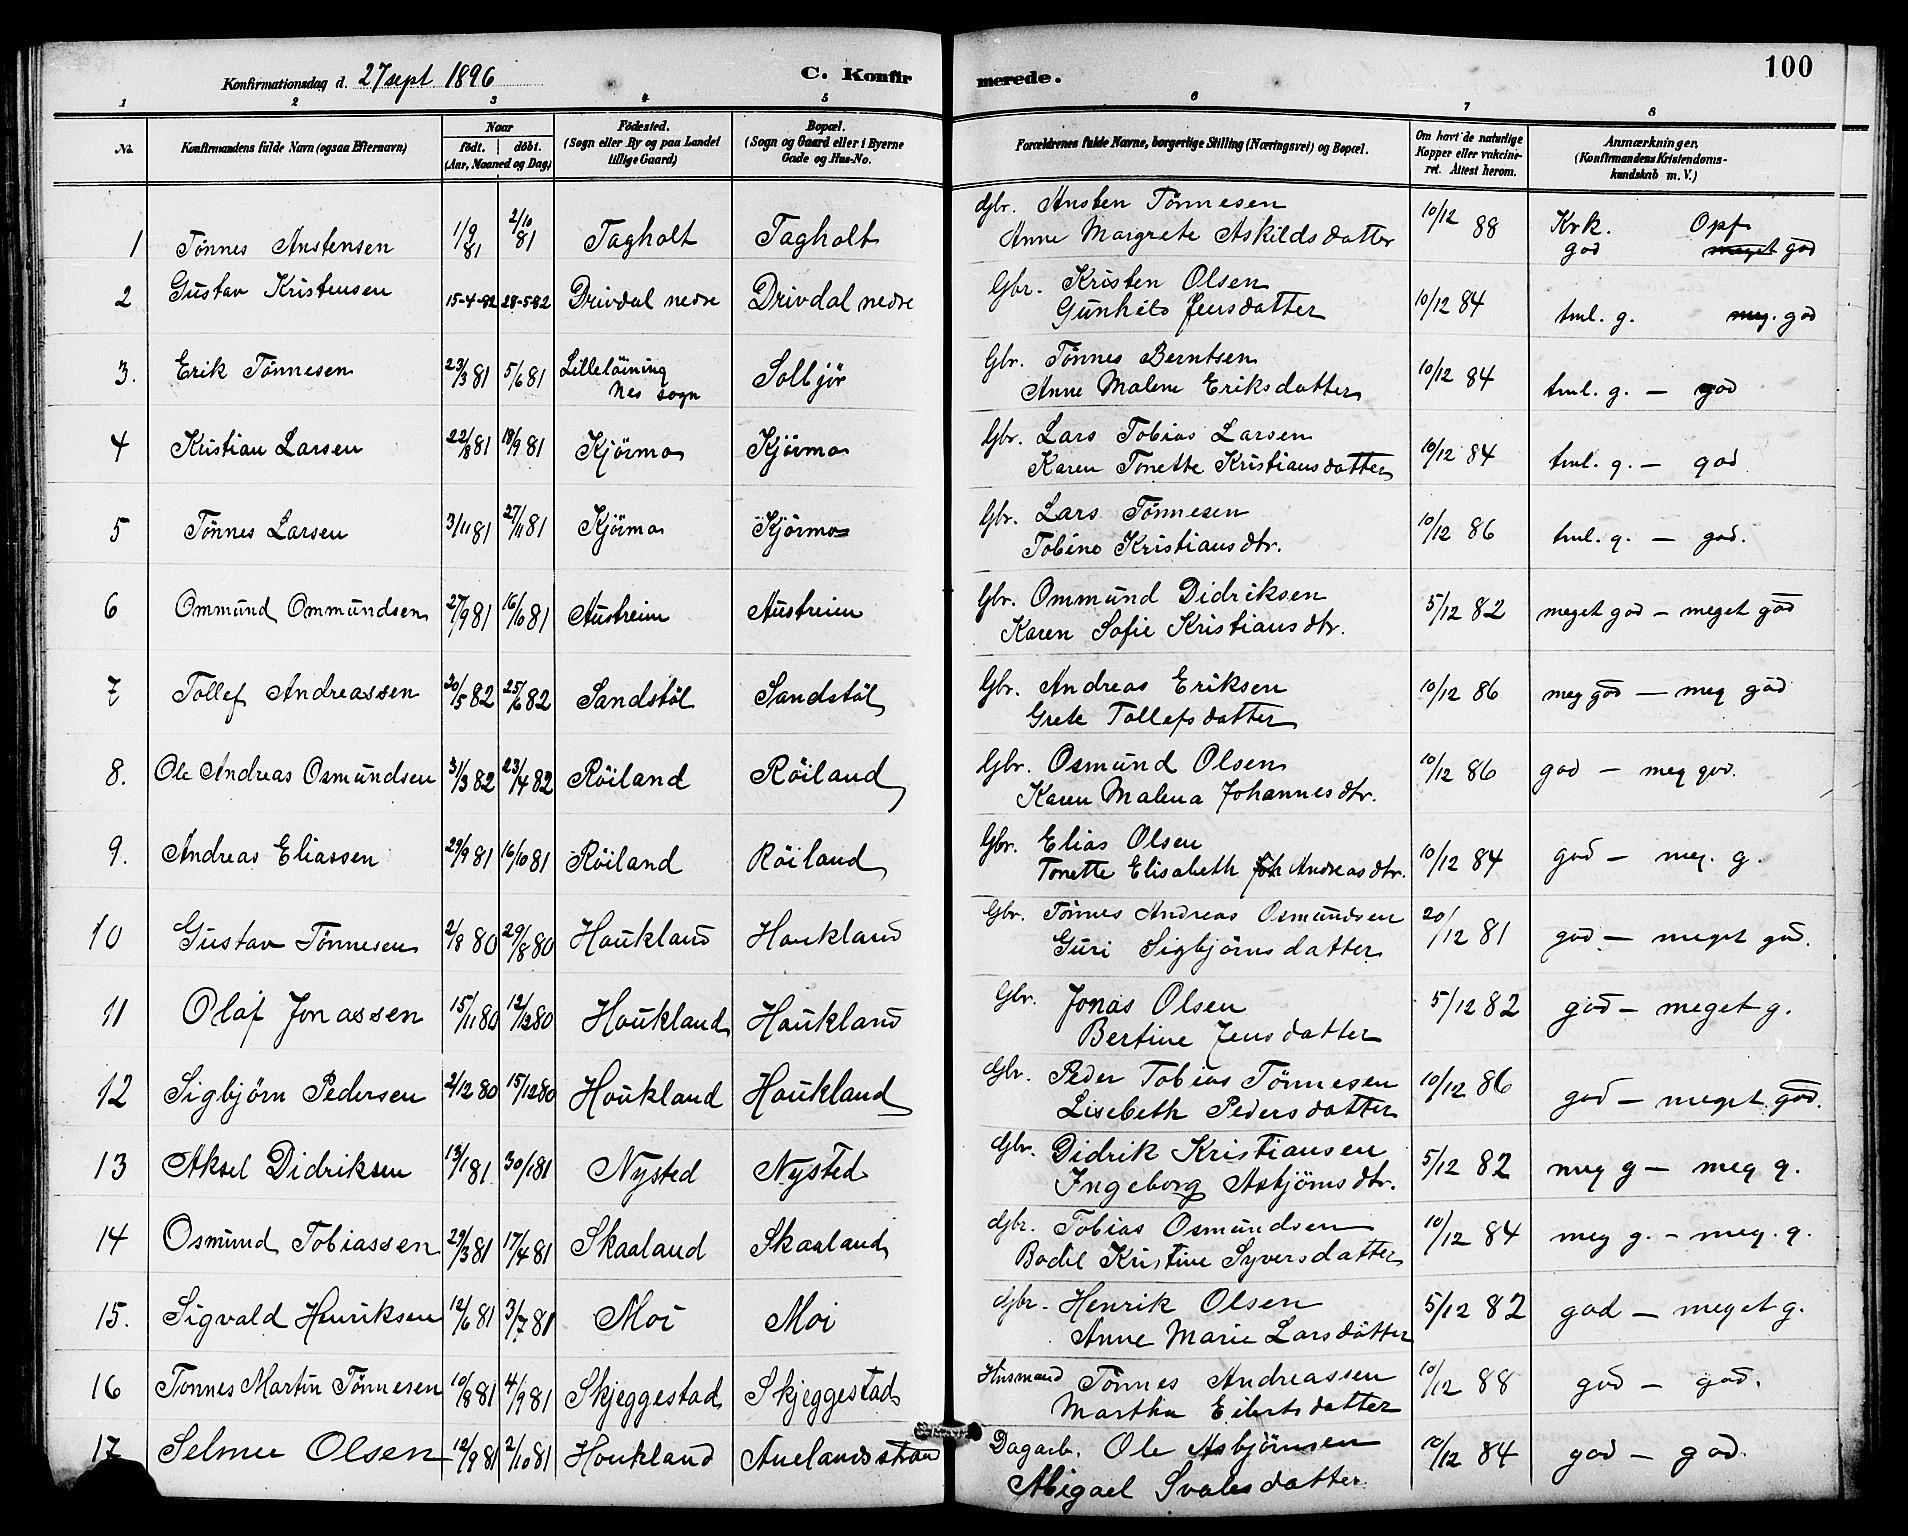 100
Konfirmationsdag d. 27 sept. 1896
C. Konfirmerede.
1 2 3 4 5 6 7 8
No.
Konfirmandens fulde Navn (ogsaa Efternavn)
Naar
født. døbt.
(Aar, Maaned og Dag)
Fødested.
(Sogn eller By og paa Landet
tillige Gaard)
Bopæl.
(Sogn og Gaard eller i Byerne
Gade og Hus-No.
Forældrenes fulde Navne, borgerlige Stilling (Næringsvei) og Bopæl.
Om havt de naturlige
Kopper eller vakcine-
ret. Attest herom.
Anmærkninger.
(Konfirmandens Kristendoms-
kundskab m. V.)
1 Tønnes Anstensen 1/9 81 2/10 81 Tagholt Tagholt Gbr. Ansten Tønnesen 10/12 88 Krk. Opf.
Anne Margrete Askildsdatter god meget god
2 Gustav Kristensen 15-4-82 28-5-82 Drivdal nedre Drivdal nedre Gbr. Kristen Olsen 10/12 84 tml. g. meg. god
Gunhild Jensdatter
3. Erik Tønnesen 23/3 81 5/6 81 Lilleløining Solbjør Gbr. Tønnes Berntsen 10/12 84 tml. g. — god
Nes sogn Anne Malene Eriksdatter
4 Kristian Larsen 22/8 81 18/9 81 Kjörmo Kjörmo Gbr. Lars Tobias Larsen 10/12 84 tml. g. — god
Karen Tonette Kristiansdatter
5 Tønnes Larsen 3/11 81 27/11 81 Kjörmo Kjörmo Gbr. Lars Tønnesen 10/12 86 tml. g. — god.
Tobine Kristiansdtr.
6 Ommund Ommundsen 27/9 81 16/10 81 Austreim Austreim Gbr. Ommund Didriksen 5/12 82 meget god — meget god
Karen Sofie Kristiansdtr.
7 Tollef Andreassen 20/5 82 25/6 82 Sandstöl Sandstöl Gbr. Andreas Eriksen 10/12 86 meg god — meg god
Grete Tollefsdatter
8. Ole Andreas Osmundsen 31/3 82 23/4 82 Röiland Röiland Gbr. Osmund Olsen 10/12 86 god — meg god.
Karen Malena Johannesdtr.
9. Andreas Eliassen 29/9 81 16/10 81 Röiland Röiland Gbr. Elias Olsen 10/12 84 god — meg. g.
Tonette Elisabeth Joh Andreasdtr.
10 Gustav Tønnesen 2/8 80 29/8 80 Haukland Haukland Gbr. Tønnes Andreas Osmundsen 20/12 81 god — meget god.
Guri Sigbjørnsdatter
11 Olaf Jonassen 15/11 80 12/12 80 Haukland Haukland Gbr. Jonas Olsen 5/12 82 god — meget g.
Bertine Jensdatter
12 Sigbjørn Pedersen 2/12 80 15/12 80 Haukland Haukland Gbr. Peder Tobias Tønnesen 10/12 86 god — meget god.
Lisebeth Pedersdatter
13 Aksel Didriksen 13/1 81 30/1 81 Nysted Nysted Gbr. Didrik Kristiansen 5/12 82 meg g — meg g.
Ingeborg Asbjörnsdtr.
14 Osmund Tobiassen 29/3 81 17/4 81 Skaaland Skaaland Gbr. Tobias Osmundsen 10/12 84 meg g. - meg. g.
Bodil Kristine Syversdatter
15. Sigvald Henriksen 12/6 81 3/7 81 Moi Moi Gbr. Henrik Olsen 5/12 82 god — meget g.
Anne Marie Larsdatter
16 Tønnes Martin Tönnesen 10/8 81 4/9 81 Skjeggestad Skjeggestad Husmand Tönnes Andreassen 10/12 88 god — god.
Martha Eilertsdatter
17 Selmer Olsen 12/9 81 2/10 81 Haukland Auelandsstran Dagarb. Ole Asbjörnsen 10/12 84 god — god.
Abigael Svalesdatter